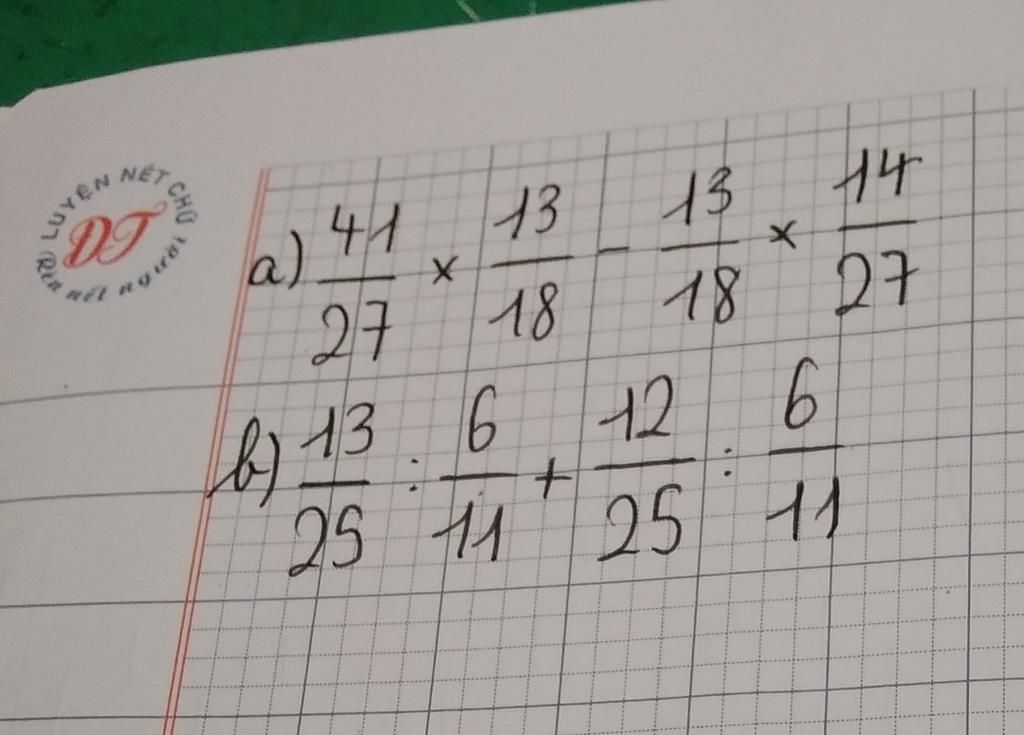 LUYỆN NÉT CHỮ
ĐT
Rèn nết người
a) 41/27 × 13/18 - 13/18 × 14/27
b) 13/25 : 6/11 + 12/25 : 6/11